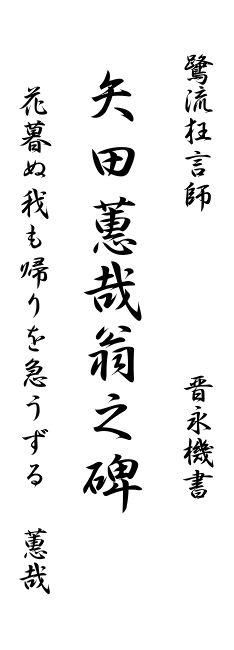 鷺流狂言師　晋永機書
矢田蕙哉翁之碑
花暮ぬ我も帰りを急うずる　蕙哉